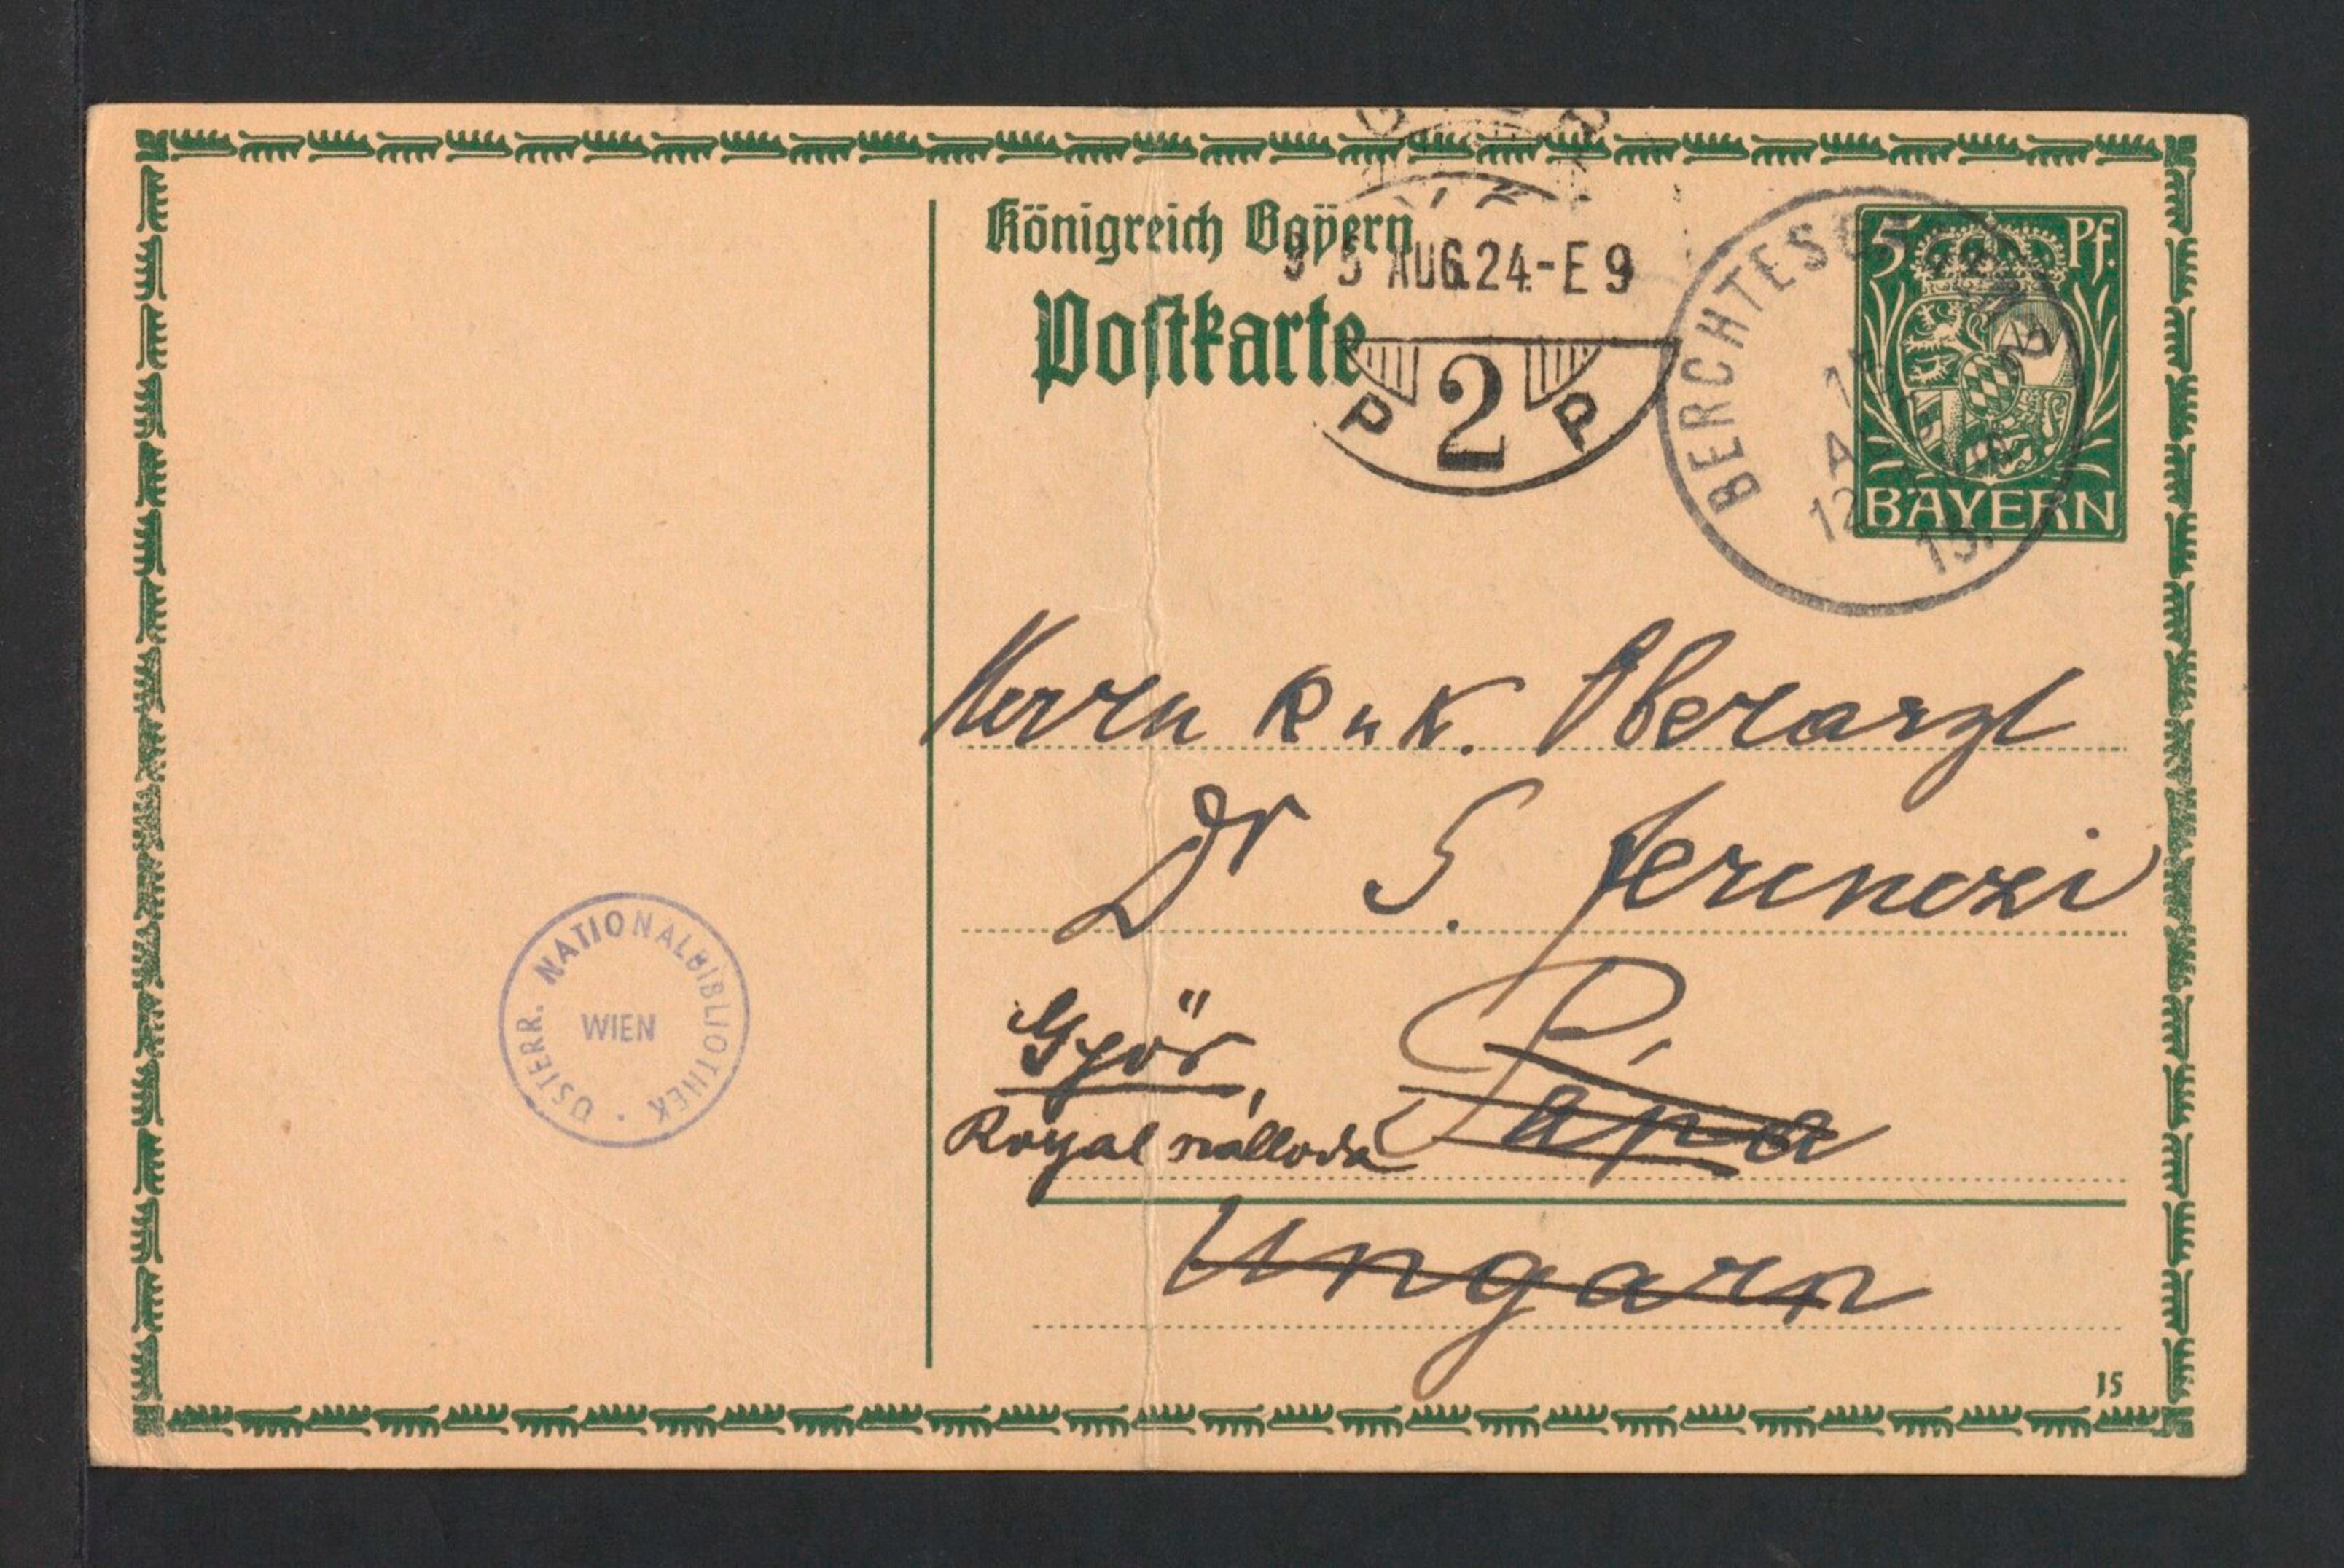 Königreich Bayern
Postkarte
915 AUG.24.-E9
P 2 P
5 Pf.
BAYERN
BERCHTESG
A
12
15.
Herrn k u k. Oberarzt
Dr S. Ferenczi
Pápa
Győr,
Royal szálloda
Ungarn
ÖSTERR. NATIONALBIBLIOTHEK · WIEN
15